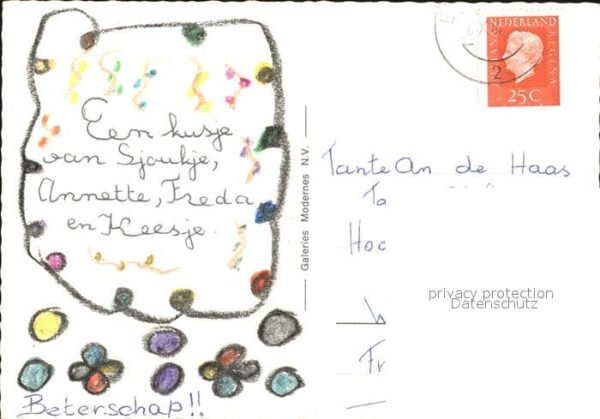 Een kusje
van Sjoukje,
Annette, Freda
en Keesje.
Beterschap!!
Galeries Modernes N.V.
NEDERLAND
REGINA
25 C
2
Tante An de Haas
Ta
Hoc
Fr
privacy protection
Datenschutz